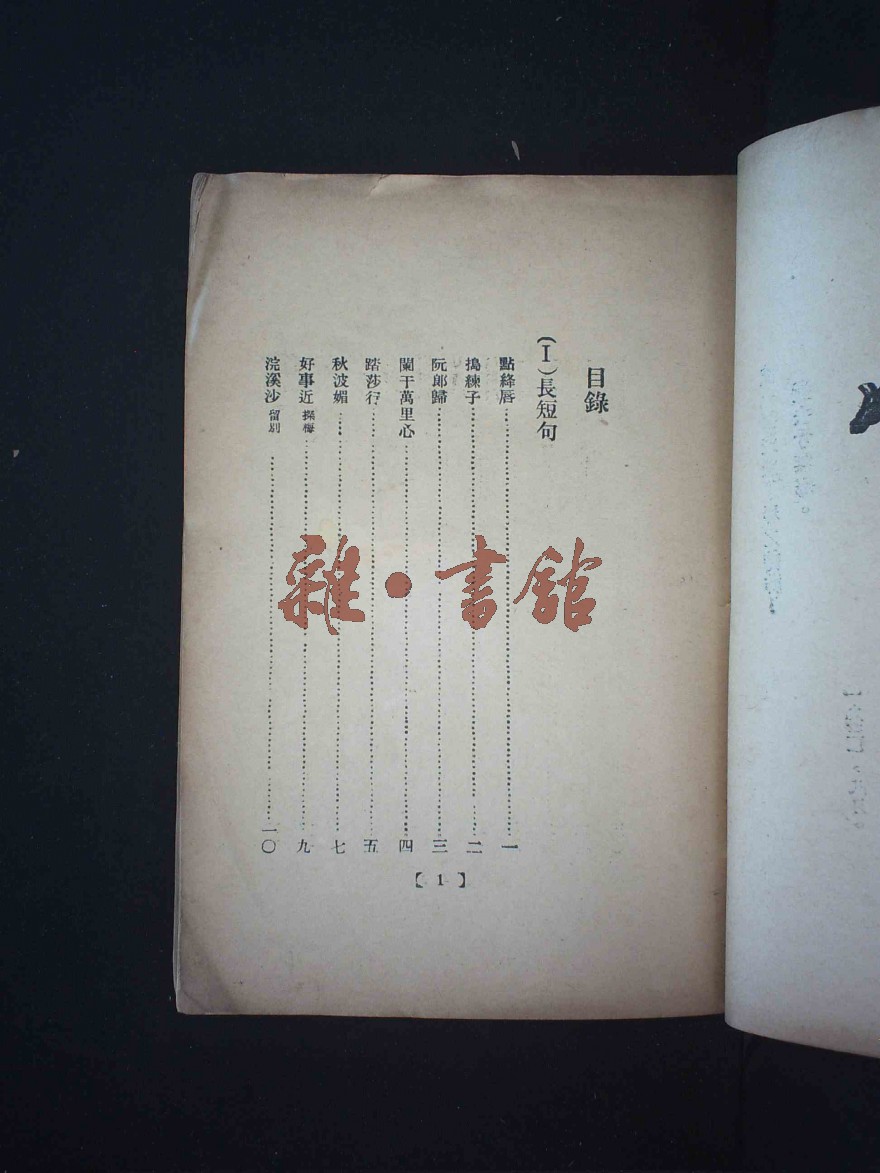 目錄
(I)長短句
點絳唇……一
搗練子……二
阮郎歸……三
闌干萬里心……四
踏莎行……五
秋波媚……七
好事近 探梅……九
浣溪沙 留別……一〇
【1】
雜·書館